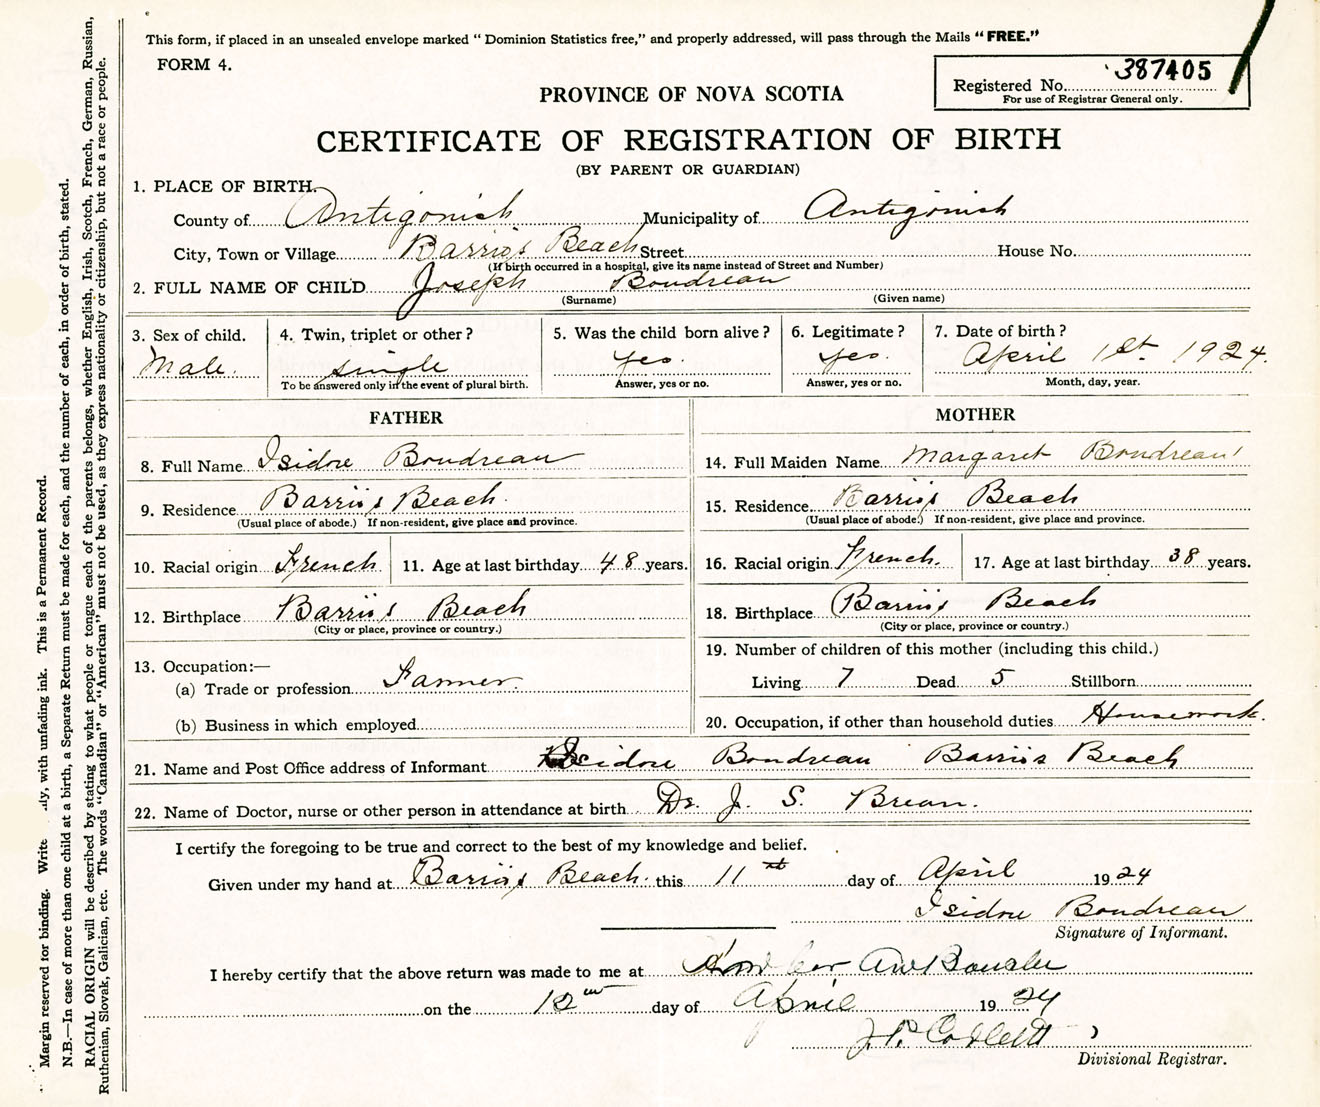 This form, if placed in an unsealed envelope marked " Dominion Statistics free," and properly addressed, will pass through the Mails "FREE."
FORM 4.
Registered No. 387405
For use of Registrar General only.
PROVINCE OF NOVA SCOTIA
CERTIFICATE OF REGISTRATION OF BIRTH
(BY PARENT OR GUARDIAN)
1. PLACE OF BIRTH.
County of Antigonish Municipality of Antigonish
City, Town or Village Barrios Beach Street House No.
(If birth occurred in a hospital, give its name instead of Street and Number)
2. FULL NAME OF CHILD Joseph Boudreau
(Surname) (Given name)
3. Sex of child. Male.
4. Twin, triplet or other? single
To be answered only in the event of plural birth.
5. Was the child born alive? yes.
Answer, yes or no.
6. Legitimate? yes.
Answer, yes or no.
7. Date of birth? April 1st. 1924.
Month, day, year.
FATHER
8. Full Name Isidore Boudreau
9. Residence Barrios Beach.
(Usual place of abode.) If non-resident, give place and province.
10. Racial origin French 11. Age at last birthday 48 years.
12. Birthplace Barrios Beach
(City or place, province or country.)
13. Occupation:—
(a) Trade or profession Farmer.
(b) Business in which employed
MOTHER
14. Full Maiden Name Margaret Boudreau
15. Residence Barrios Beach
(Usual place of abode.) If non-resident, give place and province.
16. Racial origin French. 17. Age at last birthday 38 years.
18. Birthplace Barrios Beach
(City or place, province or country.)
19. Number of children of this mother (including this child.)
Living 7 Dead 5 Stillborn
20. Occupation, if other than household duties Housework.
21. Name and Post Office address of Informant Isidore Boudreau Barrios Beach
22. Name of Doctor, nurse or other person in attendance at birth Dr. J. S. Brean.
I certify the foregoing to be true and correct to the best of my knowledge and belief.
Given under my hand at Barrios Beach. this 11th day of April 1924
Isidore Boudreau
Signature of Informant.
I hereby certify that the above return was made to me at
on the 12 day of April 1924
J. P. Corbett
Divisional Registrar.
Margin reserved for binding. Write ly, with unfading ink. This is a Permanent Record.
N.B.—In case of more than one child at a birth, a Separate Return must be made for each, and the number of each, in order of birth, stated.
RACIAL ORIGIN will be described by stating to what people or tongue each of the parents belongs, whether English, Irish, Scotch, French, German, Russian,
Ruthenian, Slovak, Galician, etc. The words "Canadian" or "American" must not be used, as they express nationality or citizenship, but not a race or people.